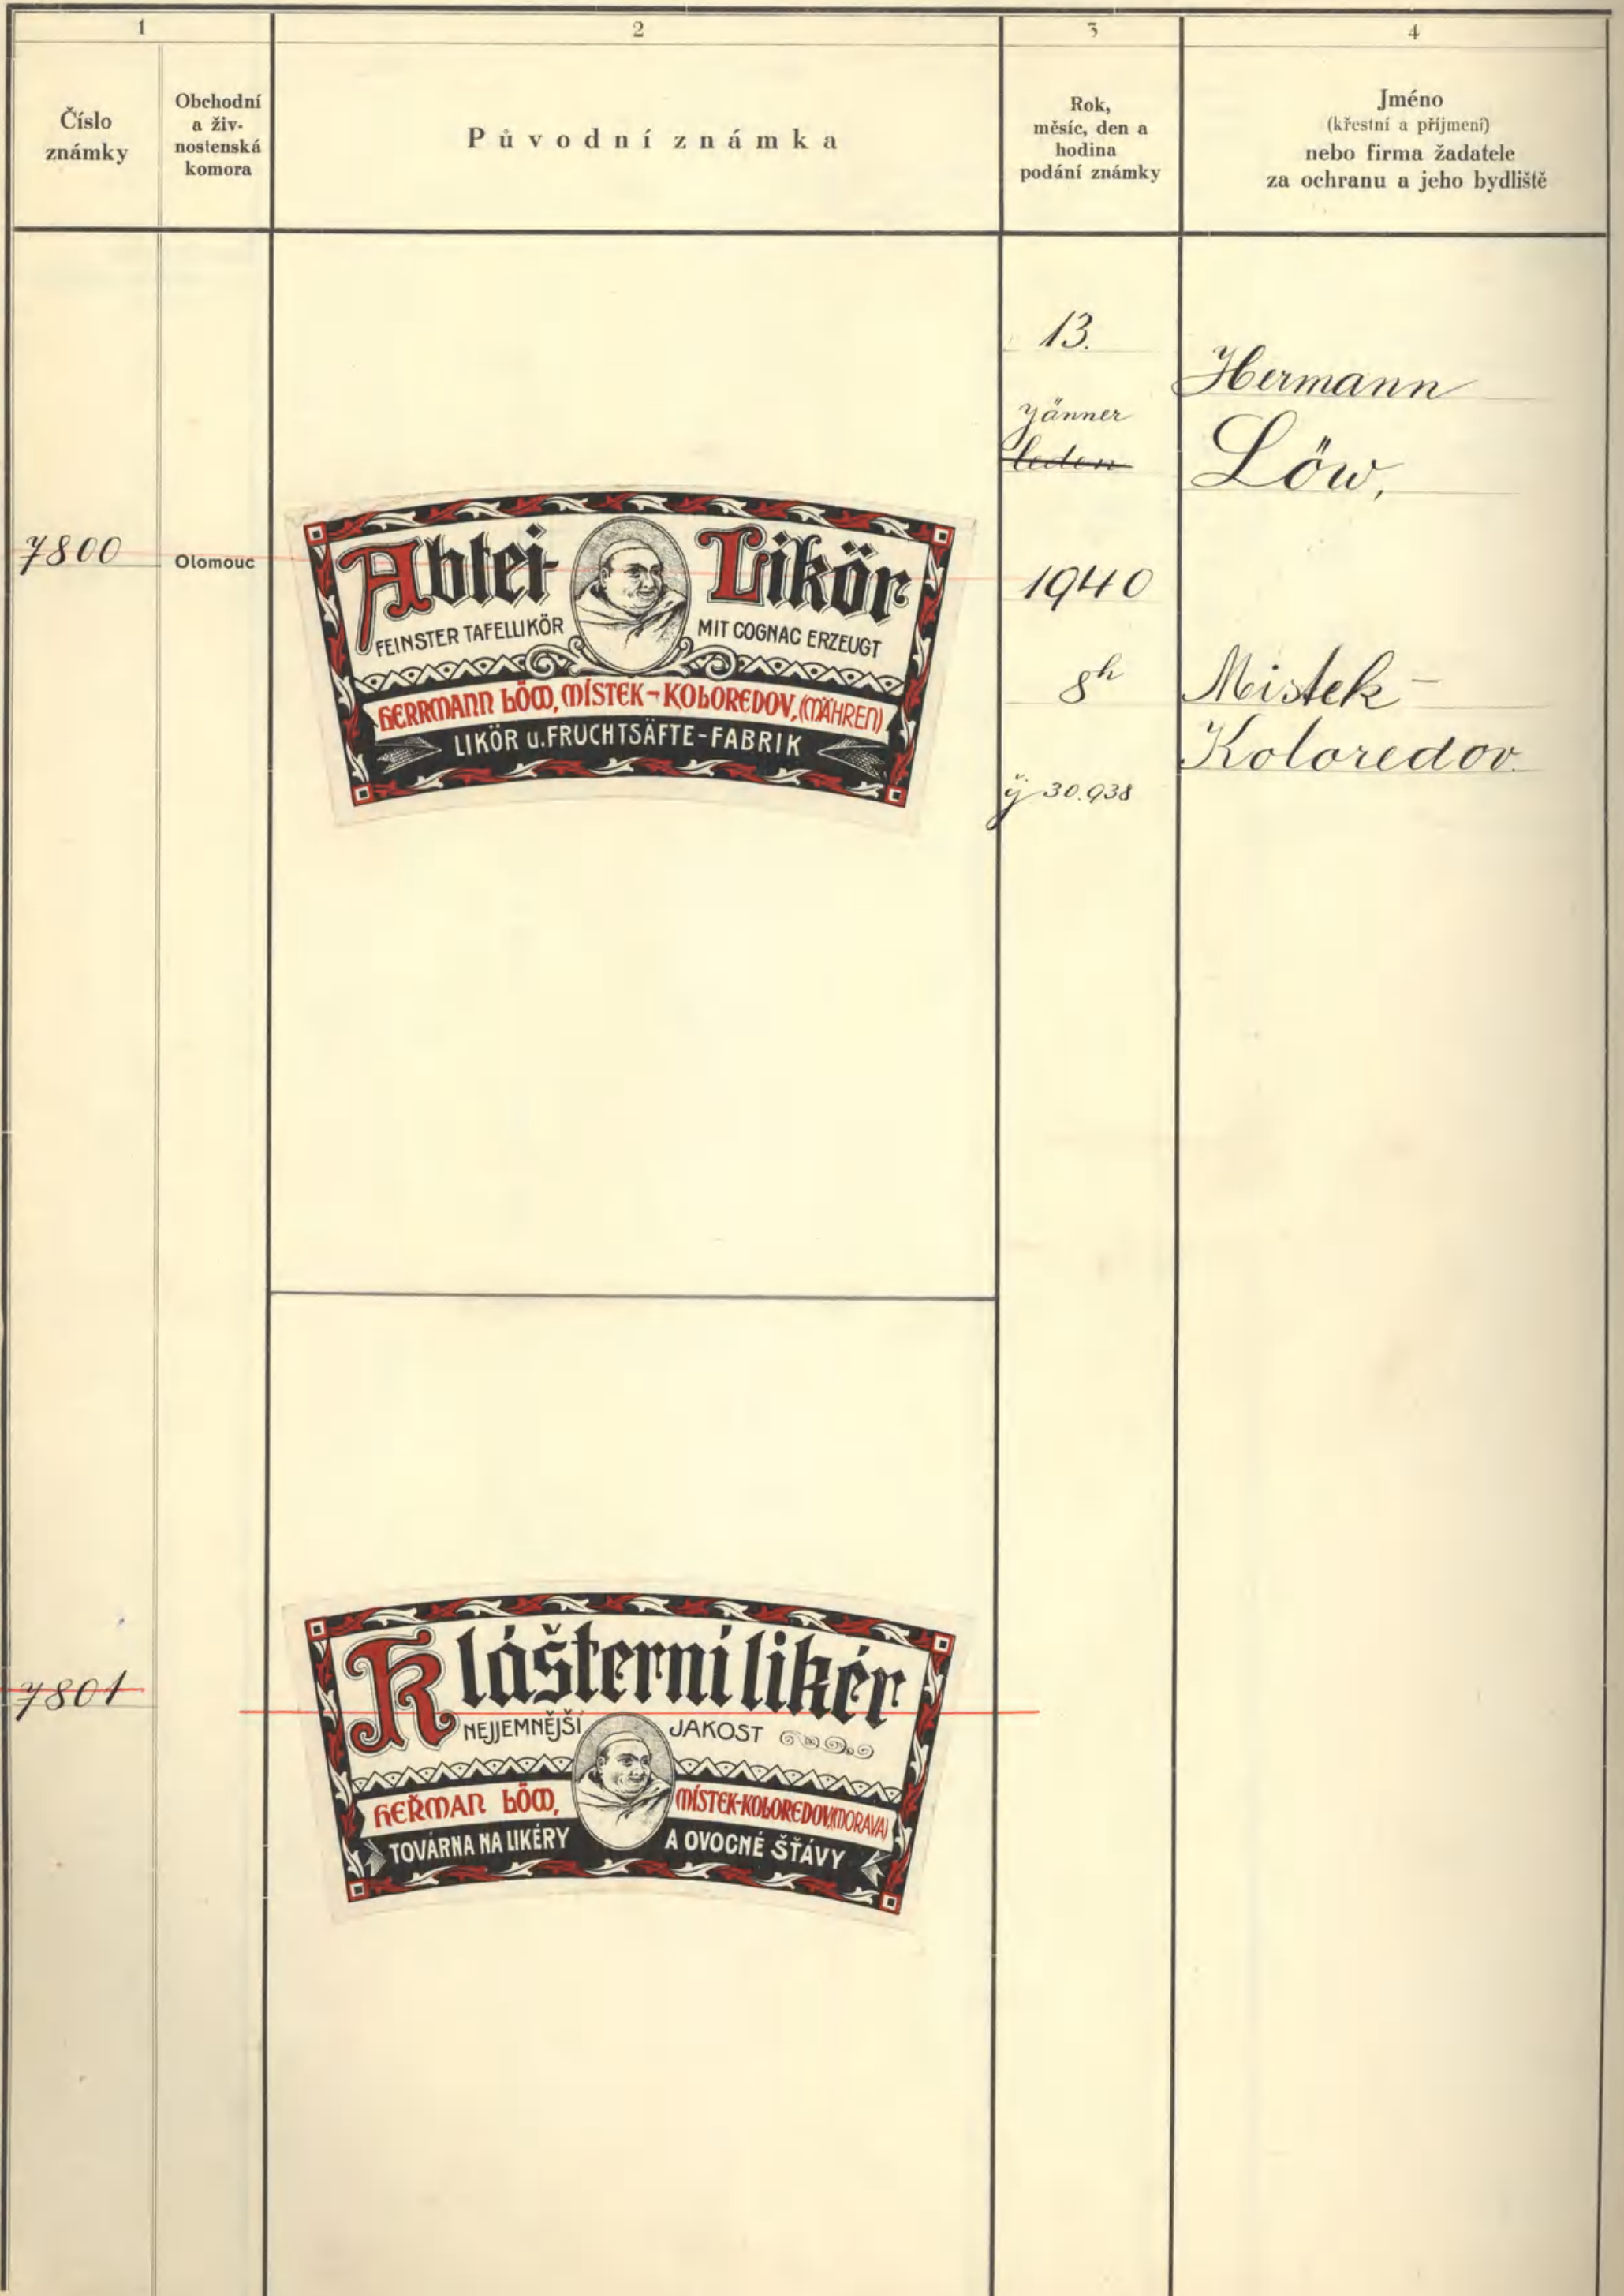 1
2
3
4
Číslo
známky
Obchodní
a živ-
nostenská
komora
Původní známka
Rok,
měsíc, den a
hodina
podání známky
Jméno
(křestní a příjmení)
nebo firma žadatele
za ochranu a jeho bydliště
7800
Olomouc
Abtei-Likör
FEINSTER TAFELLIKÖR MIT COGNAC ERZEUGT
HERRMANN LÖW, MÍSTEK-KOLOREDOV, (MÄHREN)
LIKÖR u. FRUCHTSÄFTE-FABRIK
13.
Jänner
leden
1940
8h
30.938
Hermann
Löw,
Mistek-
Koloredov
7801
Klášterní likér
NEJJEMNĚJŠÍ JAKOST
HEŘMAN LÖW, MÍSTEK-KOLOREDOV, (MORAVA)
TOVÁRNA NA LIKÉRY A OVOCNÉ ŠŤÁVY